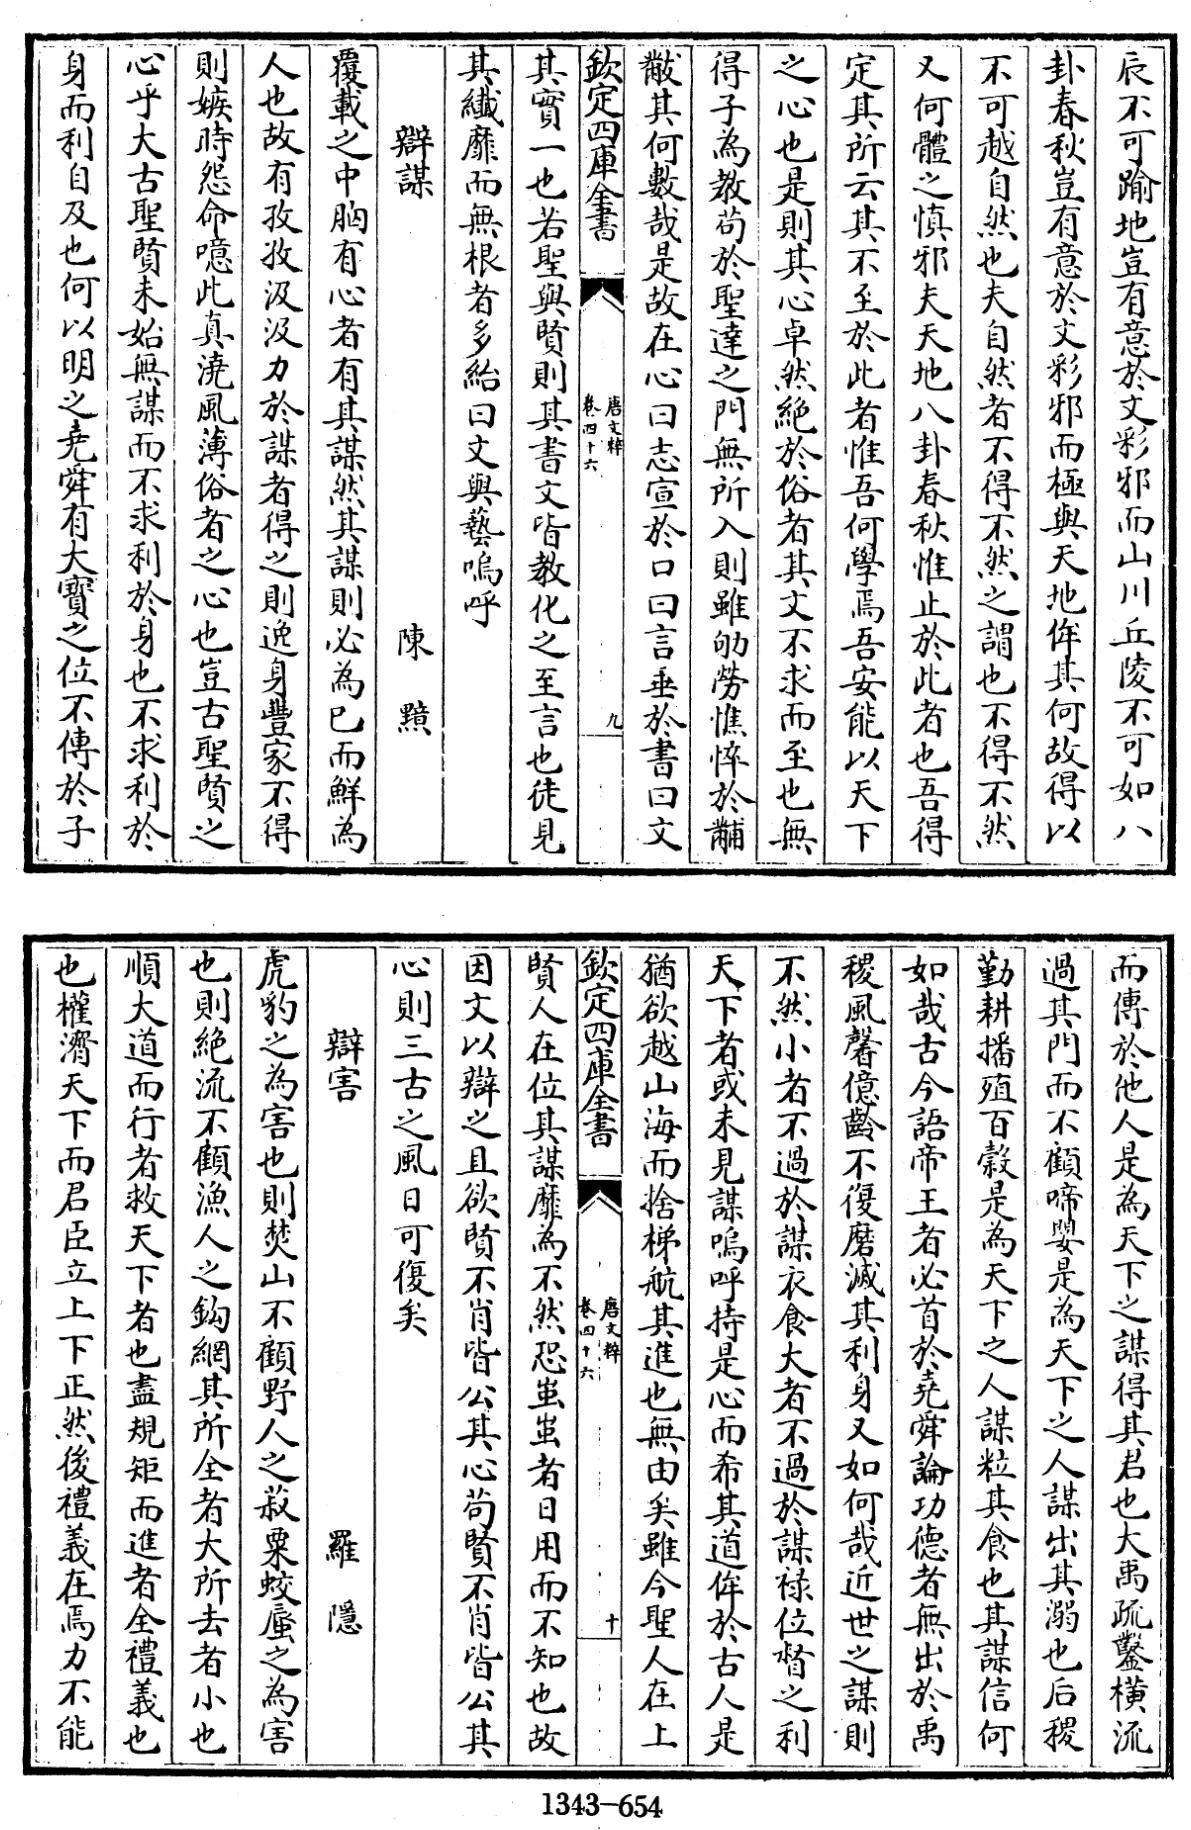 辰不可踰地豈有意於文彩邪而山川丘陵不可如八
卦春秋豈有意於文彩邪而極與天地侔其何故得以
不可越自然也夫自然者不得不然之謂也不得不然
又何體之慎邪夫天地八卦春秋惟止於此者也吾得
定其所云其不至於此者惟吾何學焉吾安能以天下
之心也是則其心卓然絶於俗者其文不求而至也無
得子為教茍於聖達之門無所入則雖劬勞憔悴於黼
黻其何數哉是故在心曰志宣於口曰言垂於書曰文
欽定四庫全書
唐文粹
卷四十六
九
其實一也若聖與賢則其書文皆教化之至言也徒見
其纎靡而無根者多紿曰文與藝嗚呼
辯謀
陳黯
覆載之中胸有心者有其謀然其謀則必為已而鮮為
人也故有孜孜汲汲力於謀者得之則逸身豐家不得
則嫉時怨命噫此真澆風薄俗者之心也豈古聖賢之
心乎大古聖賢未始無謀而不求利於身也不求利於
身而利自及也何以明之堯舜有大寶之位不傳於子
而傳於他人是為天下之謀得其君也大禹疏鑿橫流
過其門而不顧啼嬰是為天下之人謀出其溺也后稷
勤耕播殖百穀是為天下之人謀粒其食也其謀信何
如哉古今語帝王者必首於堯舜論功德者無出於禹
稷風馨億齡不復磨滅其利身又如何哉近世之謀則
不然小者不過於謀衣食大者不過於謀祿位督之利
天下者或未見謀嗚呼持是心而希其道侔於古人是
猶欲越山海而捨梯航其進也無由矣雖今聖人在上
欽定四庫全書
唐文粹
卷四十六
十
賢人在位其謀靡為不然恐蚩蚩者日用而不知也故
因文以辯之且欲賢不肖皆公其心茍賢不肖皆公其
心則三古之風日可復矣
辯害
羅隱
虎豹之為害也則焚山不顧野人之菽粟蛟蜃之為害
也則絶流不顧漁人之鈎網其所全者大所去者小也
順大道而行者救天下者也盡規矩而進者全禮義也
也權濟天下而君臣立上下正然後禮義在焉力不能
1343-654